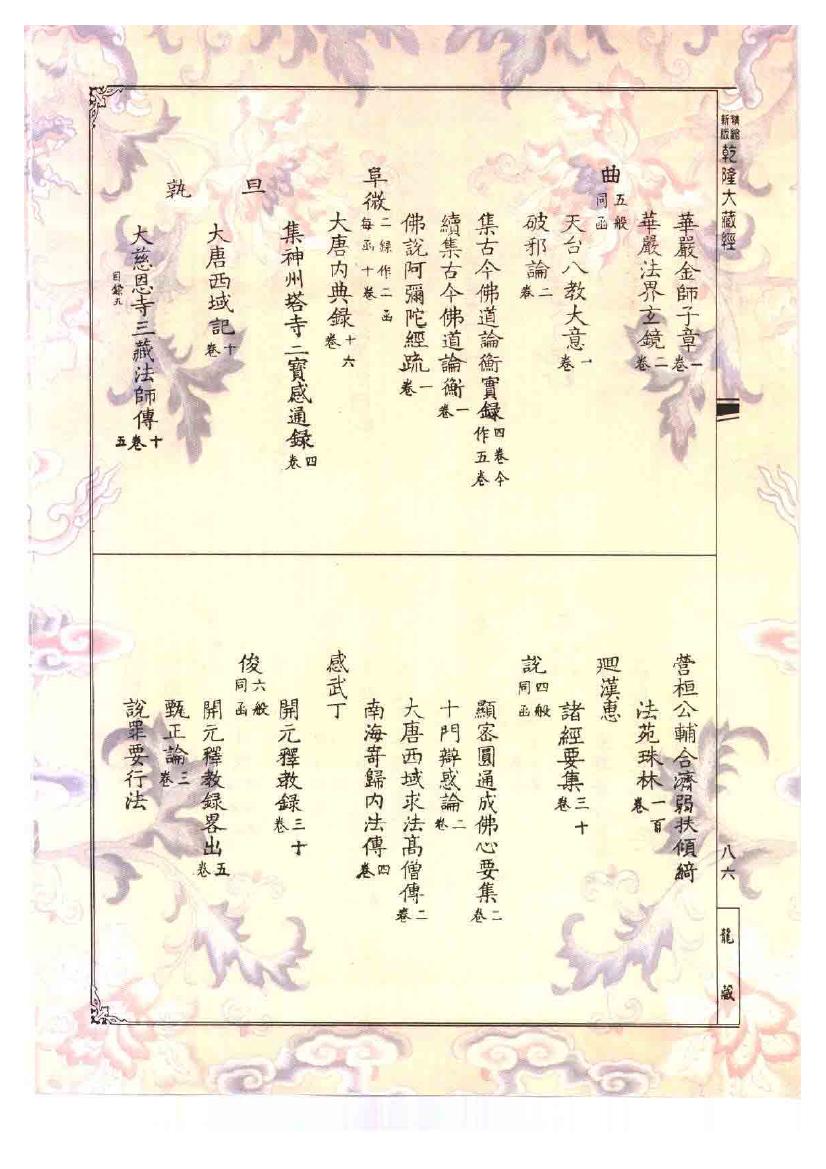 新版精縮乾隆大藏經
八六
龍藏
華嚴金師子章一卷
華嚴法界玄鏡二卷
曲五般同函
天台八教大意一卷
破邪論二卷
集古今佛道論衡實錄四卷今作五卷
續集古今佛道論衡一卷
佛說阿彌陀經疏一卷
阜微二錄作二函每函十卷
大唐内典錄十六卷
集神州塔寺三寶感通錄四卷
旦
大唐西域記十卷
孰
大慈恩寺三藏法師傳十卷
目錄五
五
營桓公輔合濟弱扶傾綺
法苑珠林一百卷
迴漢惠
諸經要集三十卷
說四般同函
顯密圓通成佛心要集二卷
十門辯惑論二卷
大唐西域求法髙僧傳二卷
南海寄歸内法傳四卷
感武丁
開元釋教錄三十卷
俊六般同函
開元釋教錄畧出五卷
甄正論三卷
說罪要行法